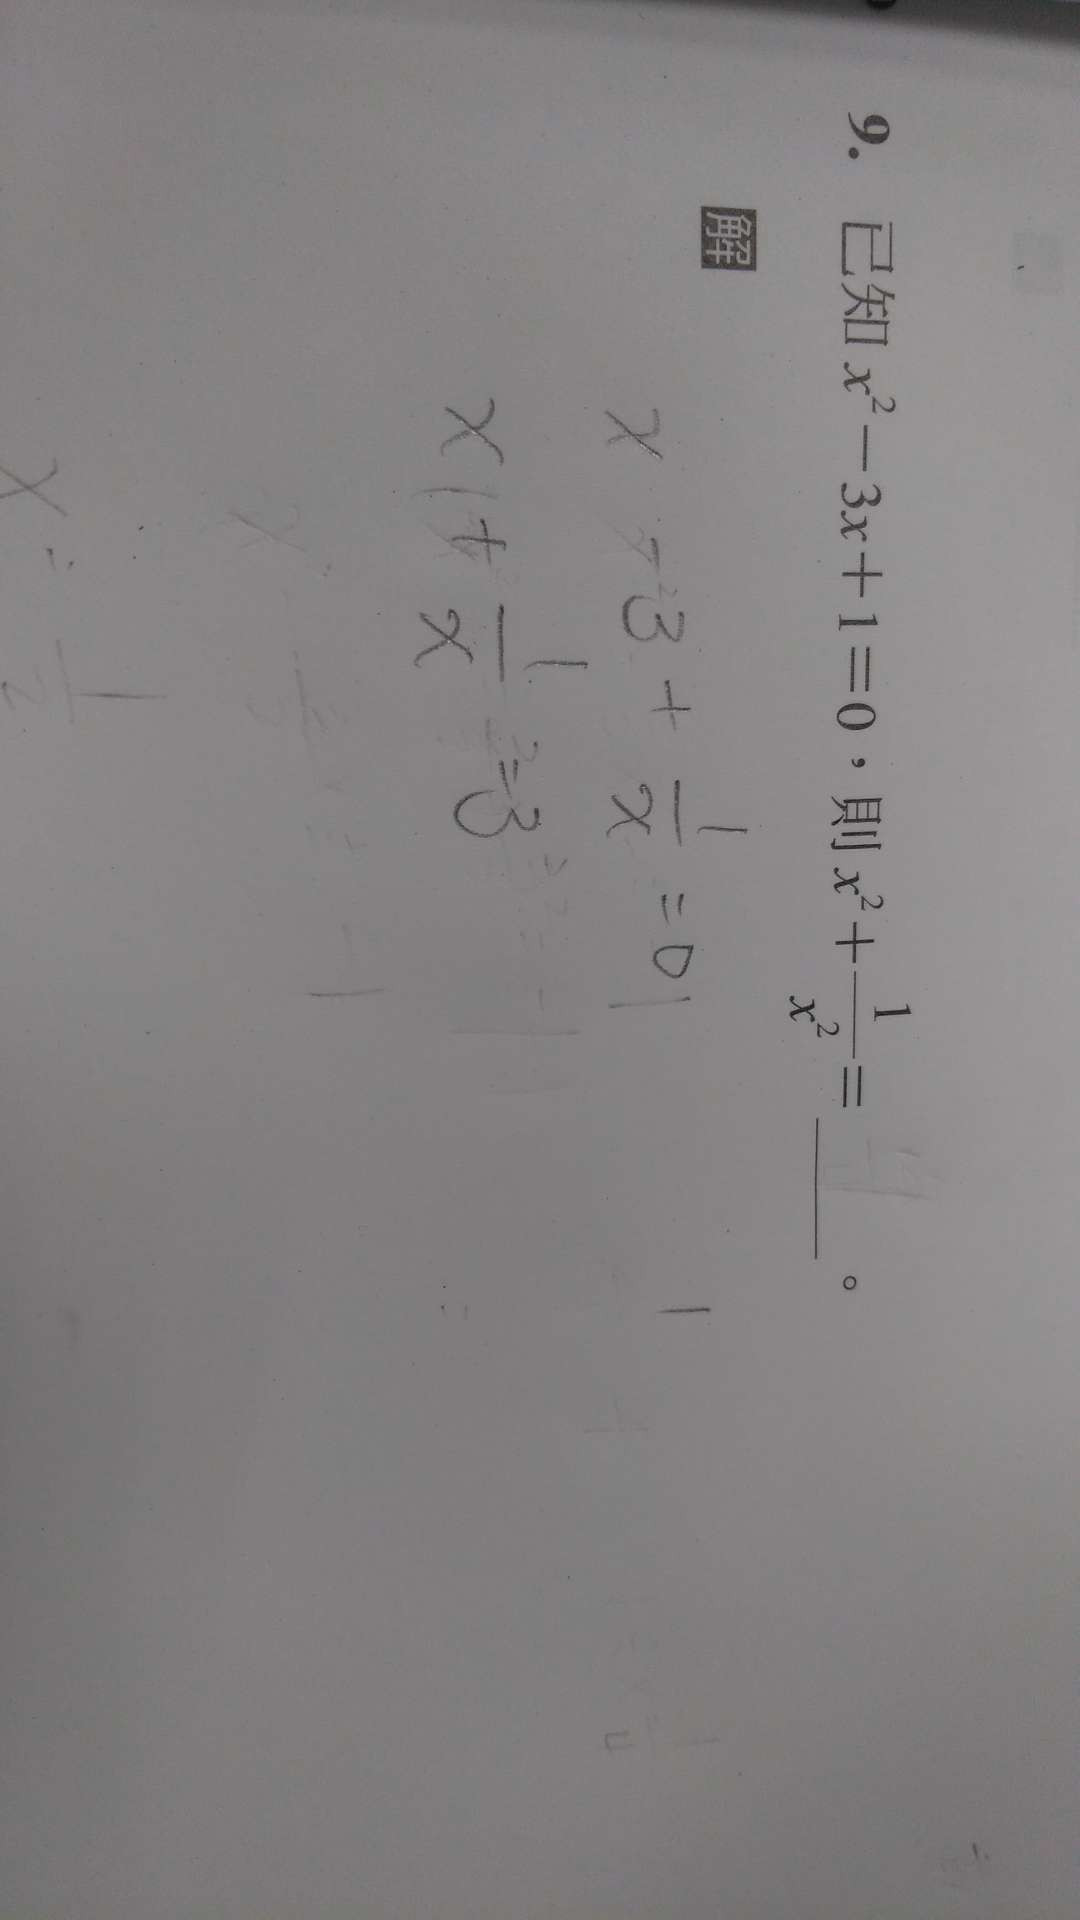 9. 已知 x²－3x＋1＝0，則 x²＋1/x²＝＿＿＿。
解
x - 3 + 1/x = 0
x + 1/x = 3